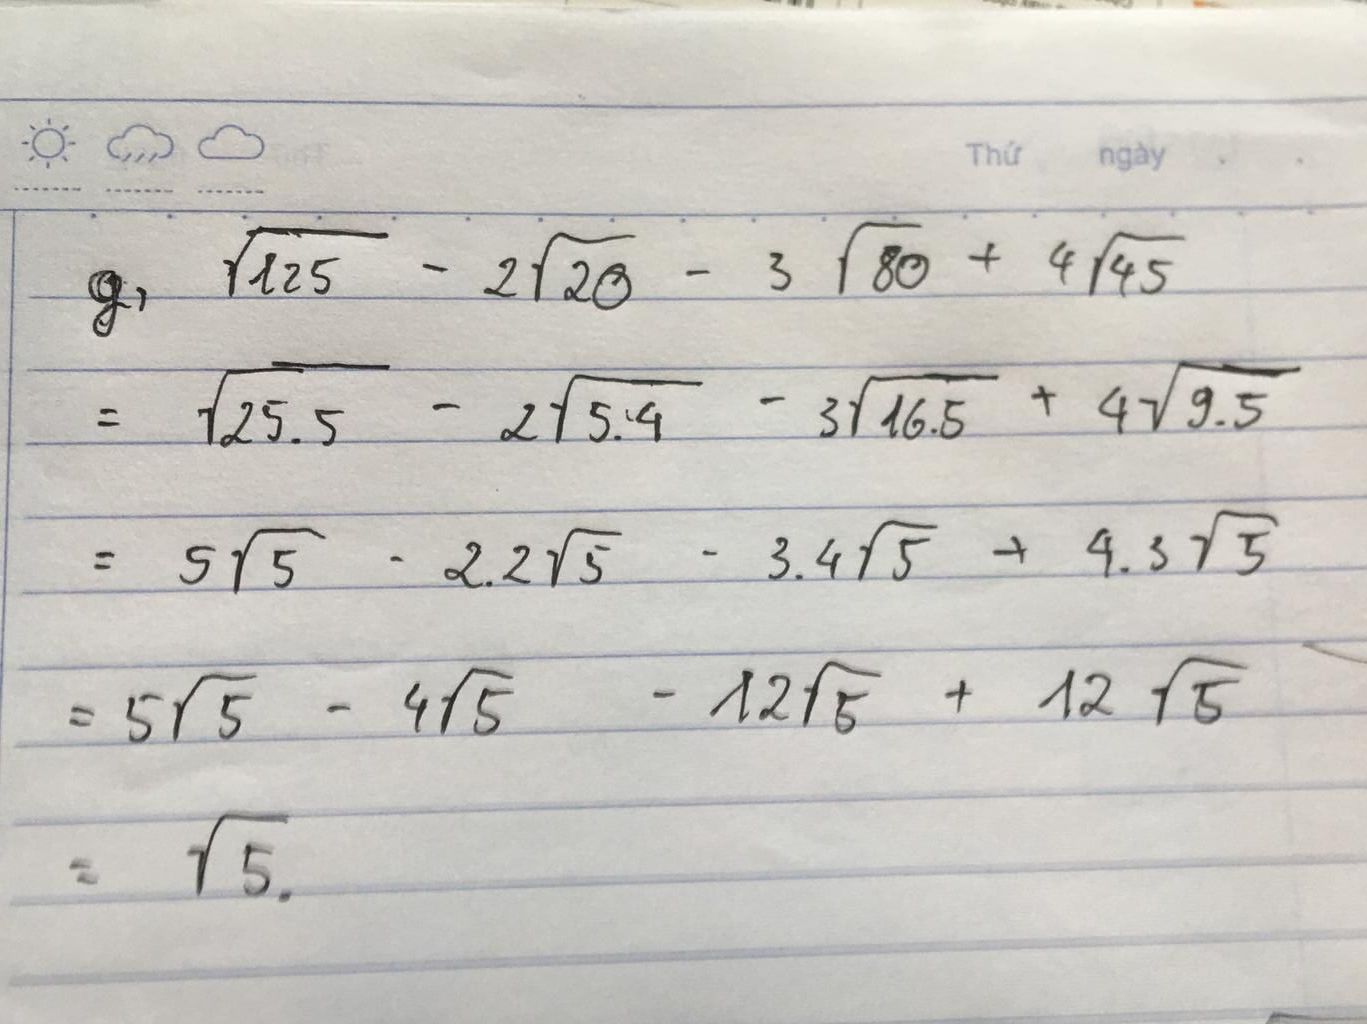 Thứ ngày . .
g, √125 - 2√20 - 3√80 + 4√45
= √25.5 - 2√5.4 - 3√16.5 + 4√9.5
= 5√5 - 2.2√5 - 3.4√5 + 4.3√5
= 5√5 - 4√5 - 12√5 + 12√5
= √5.